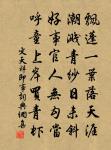 飄蓬一葉落天涯
潮濺青紗日未斜
好事官人無勾當
呼童上岸買青蝦
文天祥即事詞典網喜